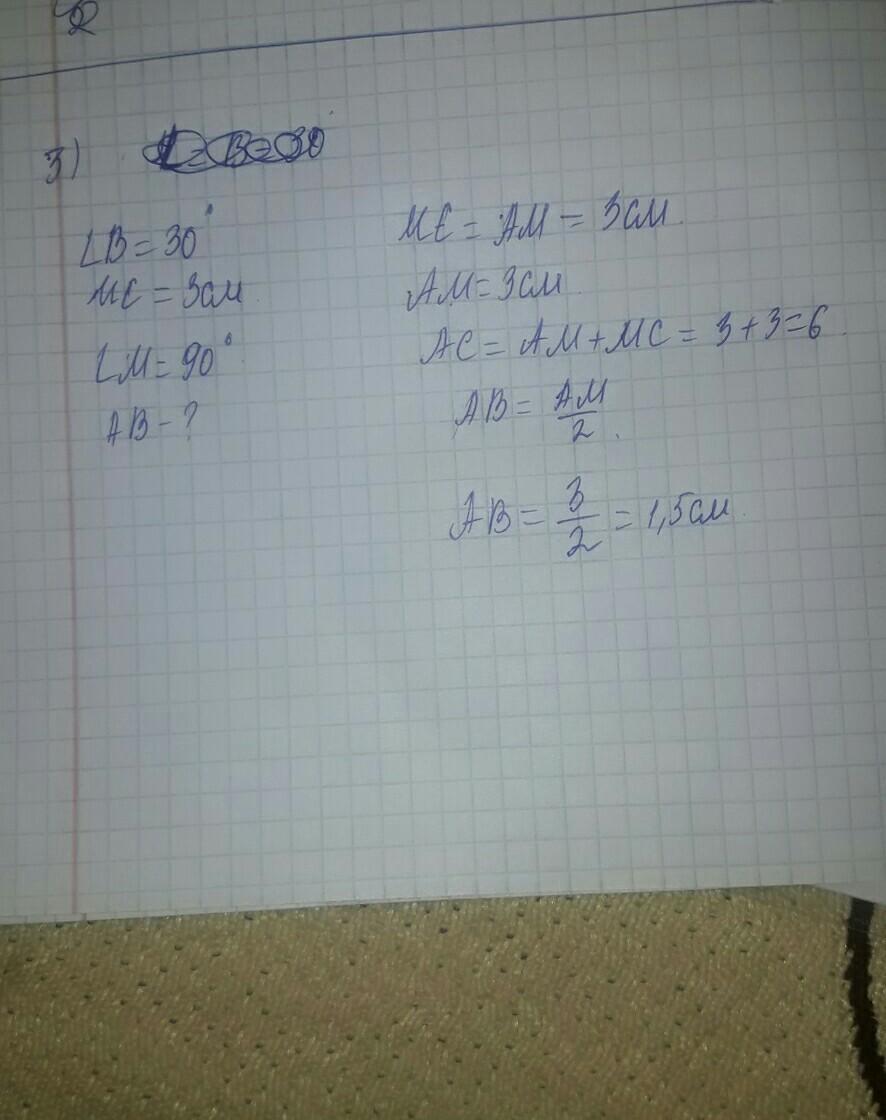 3)
∠B = 30°
MC = 3см
∠M = 90°
AB - ?
MC = AM = 3см.
AM = 3см
AC = AM + MC = 3 + 3 = 6
AB = AM/2.
AB = 3/2 = 1,5см